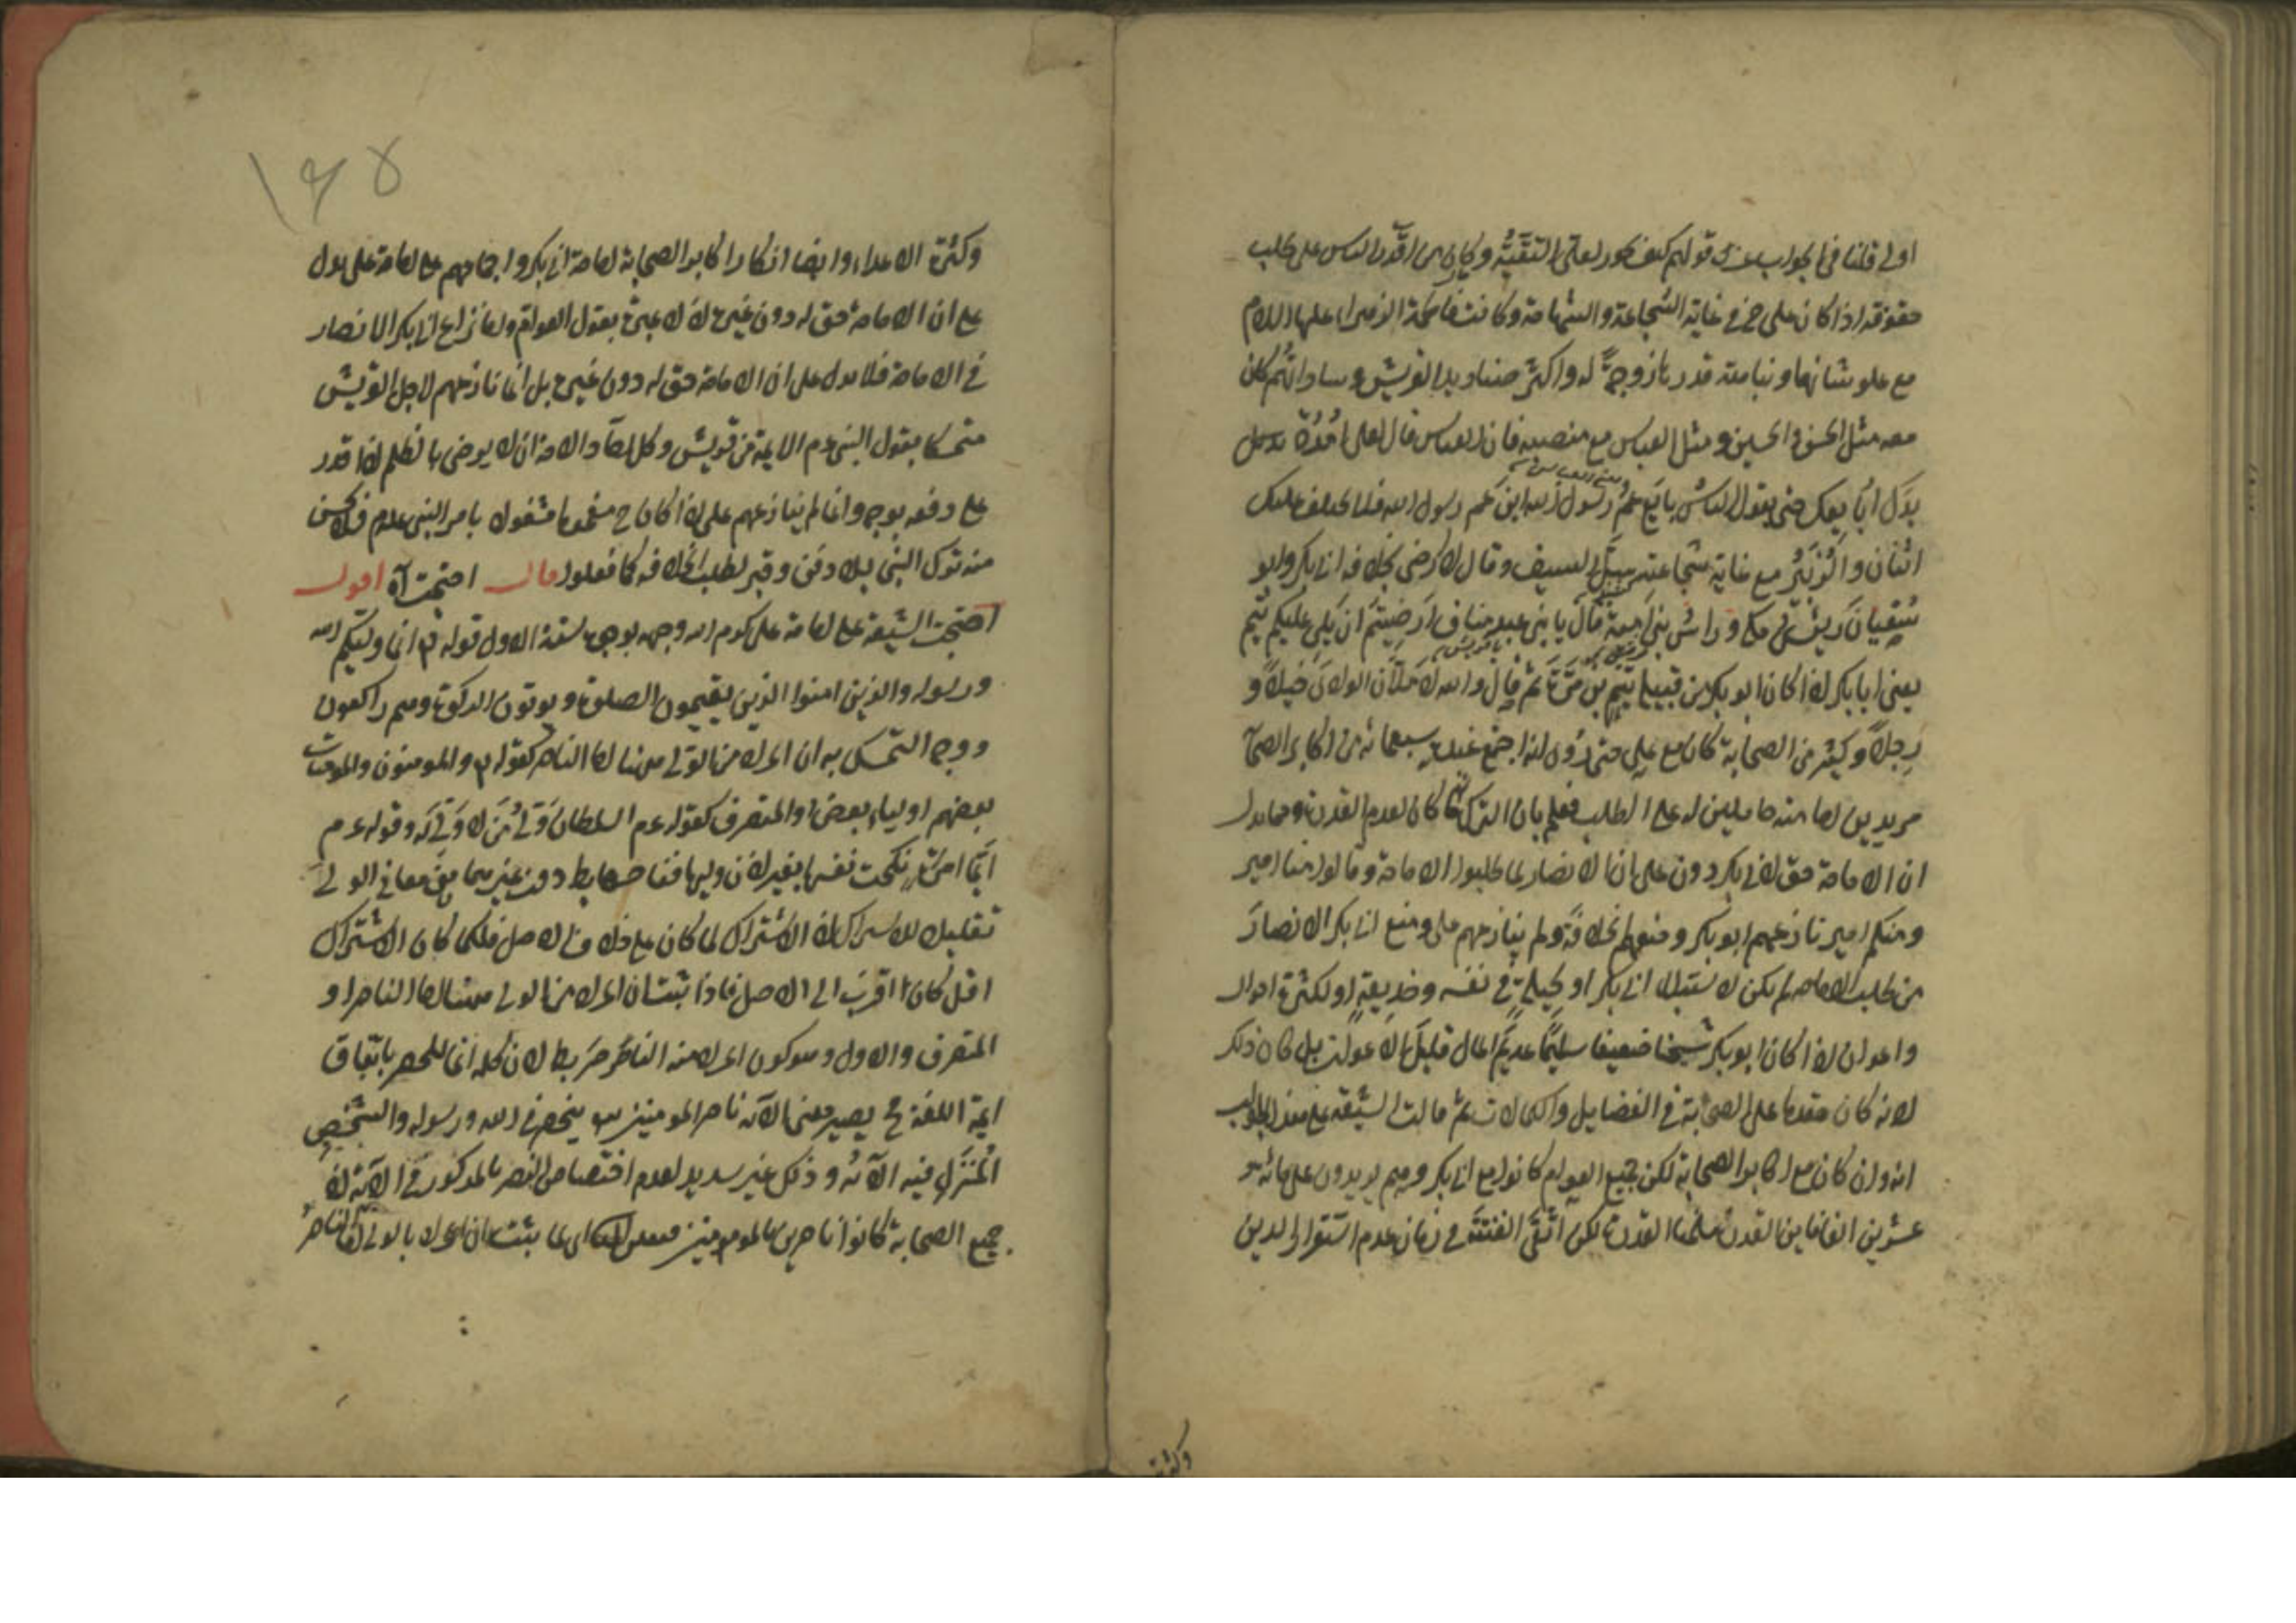 اولى قلنا في الجواب عن قولهم كيف يكون لعلى التقية وكان من اقدر الناس على طلب
حقوقه اذا كان على رض في غاية الشجاعة والشهامة وكانت فاطمة الزهراء عليها السلام
مع علو شانها ونباهة قدرها زوجة له واكثر صناديد القريش وساداتهم كان
معه مثل الحسن والحسين ومثل العباس مع منصبه فان العباس قال لعلى امدد
يدك ابايعك حتى يقول الناس بايع عم رسول الله ابن عم رسول الله فلا يختلف عليك
اثنان والزبير مع غاية شجاعته سل السيف وقال لا ارضى بخلافة ابى بكر وابو
سفيان رئيس مكة وراس بنى امية قال يا بنى عبد مناف ارضيتم ان يلى عليكم تيم
يعنى ابا بكر اذ كان ابو بكر من قبيلة تيم بن مرة ثم قال والله لاملأن الوادى خيلا و
رجلا وكثير من الصحابة كان مع على حتى اجتمع عنده سبعمائة من اكابر الصحا
مريدين لامامته حاملين له على الطلب فعلم بان الترك ما كان لعدم القدرة ومما يدل
ان الامامة حق لابى بكر دون على ان الانصار لما طلبوا الامامة وقالوا منا امير
ومنكم امير نازعهم ابو بكر ومنعهم الخلافة ولم ينازعهم على ومنع ابى بكر الانصار
من طلب الامامة لم يكن لاستقبال ابى بكر او لحيلة في نفسه وخديعة او لكثرة اموال
واعوان اذ كان ابو بكر شيخا ضعيفا سليما عديم المال قليل الاعوان بل كان ذلك
لانه كان مقدما على الصحابة في الفضايل والكمالات ثم قالت الشيعة على هذا الجواب
انه وان كان مع اكابر الصحابة لكن جميع العوام كانوا مع ابى بكر وهم يزيدون على مائة و
عشرين الفا فاين القدرة سلمنا القدرة لكن اتقى الفتنة في زمان عدم استقرار الدين
وكثرة
١٦٥
وكثرة الاعداء وايضا انكار اكابر الصحابة امامة ابى بكر واجماعهم على امامة على يدل
على ان الامامة حق له دون غيره لا عبرة بقول العوام واما نزاع ابى بكر الانصار
في الامامة فلا يدل على ان الامامة حق له دون غيره بل انما نازعهم لاجل القريش
متمسكا بقول النبى عم الايمة من قريش وكل احاد الامة ان لا يرضى بالظلم اذا قدر
على دفعه بوجه وانما لم ينازعهم على اذ كان ح مغموما مشغولا بامر النبى عدم فلا يحسن
منه ترك النبى بلا دفن وقبر لطلب الخلافة كما فعلوا قال احتجت آه اقول
احتجت الشيعة على امامة على كرم الله وجهه بوجوه ستة الاول قوله تع انما وليكم الله
ورسوله والذين امنوا الذين يقيمون الصلوة ويوتون الزكوة وهم راكعون
ووجه التمسك به ان المراد من الولى ههنا اما الناصر كقوله تع والمومنون والمومنات
بعضهم اولياء بعض او المتصرف كقوله عم السلطان ولى من لا ولى له وقوله عم
ايما امرأة نكحت نفسها بغير اذن وليها فنكاحها باطل دون غيرهما من معانى الولى
تقليلا للاشتراك لان الاشتراك لما كان على خلاف الاصل فكلما كان الاشتراك
اقل كان اقرب الى الاصل فاذا ثبت ان المراد من الولى ههنا اما الناصر او
المتصرف والاول وهو كون المراد منه الناصر باطل لان كلمة انما للحصر باتفاق
ايمة اللغة ح يصير معنى الآية ناصر المومنين ينحصر في الله ورسوله والشخص
المنزل فيه الآية وذلك غير سديد لعدم اختصاص النصر بالمذكور في الآية لان
جميع الصحابة كانوا ناصرين للمومنين فتعين الثانى لما ثبت ان المراد بالولى اما الناصر